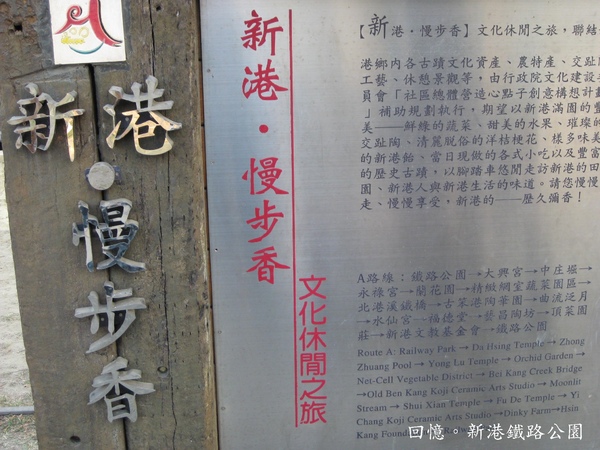 新港・慢步香
新港・慢步香
文化休閒之旅
【新港・慢步香】文化休閒之旅，聯結
港鄉內各古蹟文化資產、農特產、交趾
工藝、休憩景觀等，由行政院文化建設
員會「社區總體營造心點子創意構想計劃
」補助規劃執行，期望以新港滿園的豐
美——鮮綠的蔬菜、甜美的水果、璀璨的
交趾陶、清麗脫俗的洋桔梗花、樣多味美
的新港飴、當日現做的各式小吃以及豐富
的歷史古蹟，以腳踏車悠閒走訪新港的田
園、新港人與新港生活的味道。請您慢慢
走、慢慢享受，新港的——歷久彌香！
A路線：鐵路公園→大興宮→中庄堀→
永祿宮→蘭花園→精緻網室蔬菜園區→
北港溪鐵橋→古笨港陶華園→曲流泛月
→水仙宮→福德堂→藝昌陶坊→頂菜園
→新港文教基金會→鐵路公園
Route A: Railway Park → Da Hsing Temple → Zhong
Zhuang Pool → Yong Lu Temple → Orchid Garden →
Net-Cell Vegetable District → Bei Kang Creek Bridge
→Old Ben Kang Koji Ceramic Arts Studio → Moonlit
Stream → Shui Xian Temple → Fu De Temple → Yi
Chang Koji Ceramic Arts Studio →Dinky Farm→Hsin
Kang Foundation
回憶。新港鐵路公園